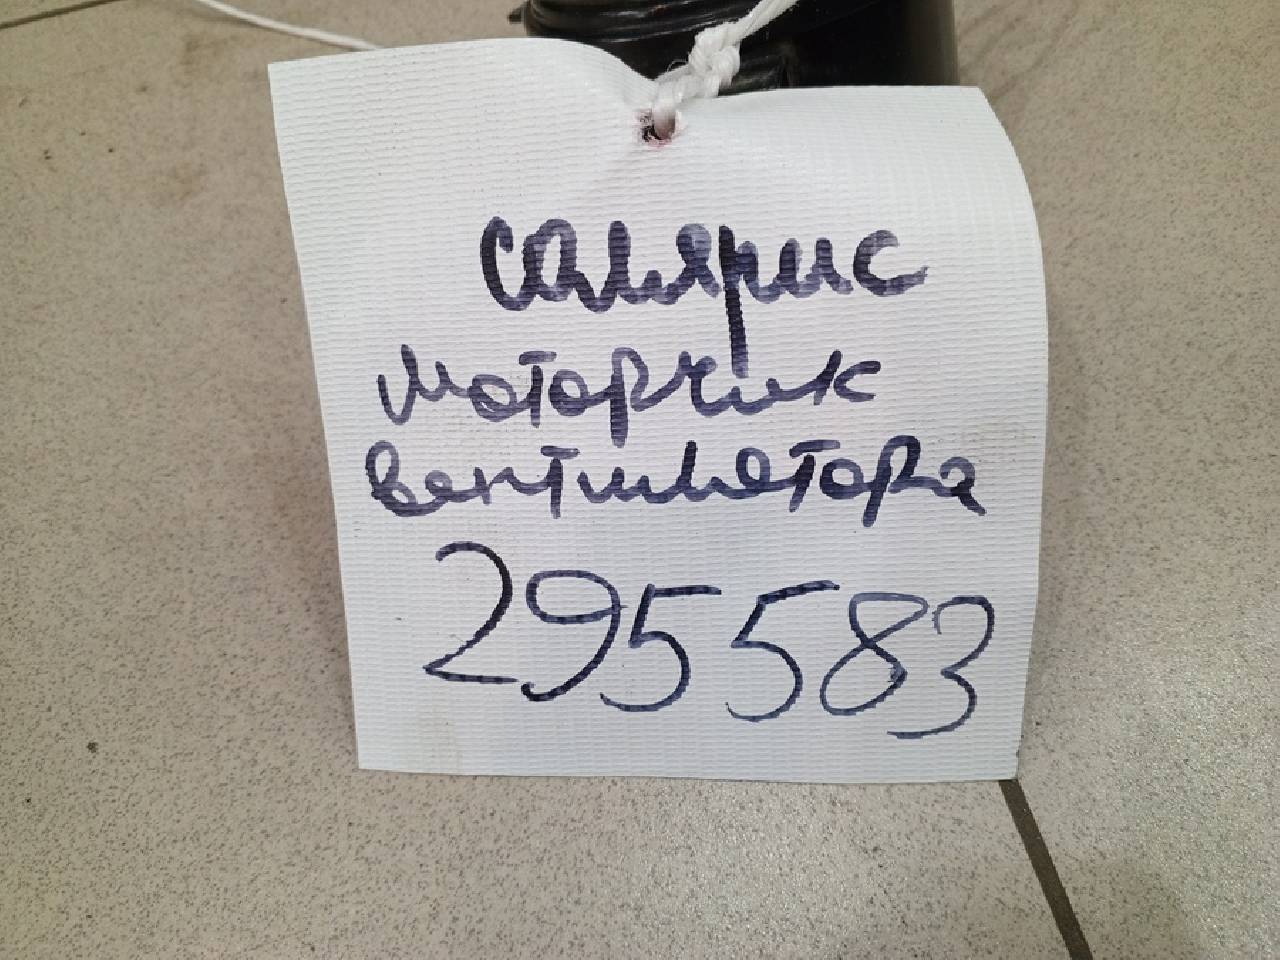 Салярис
моторчик
вентилятора
295583